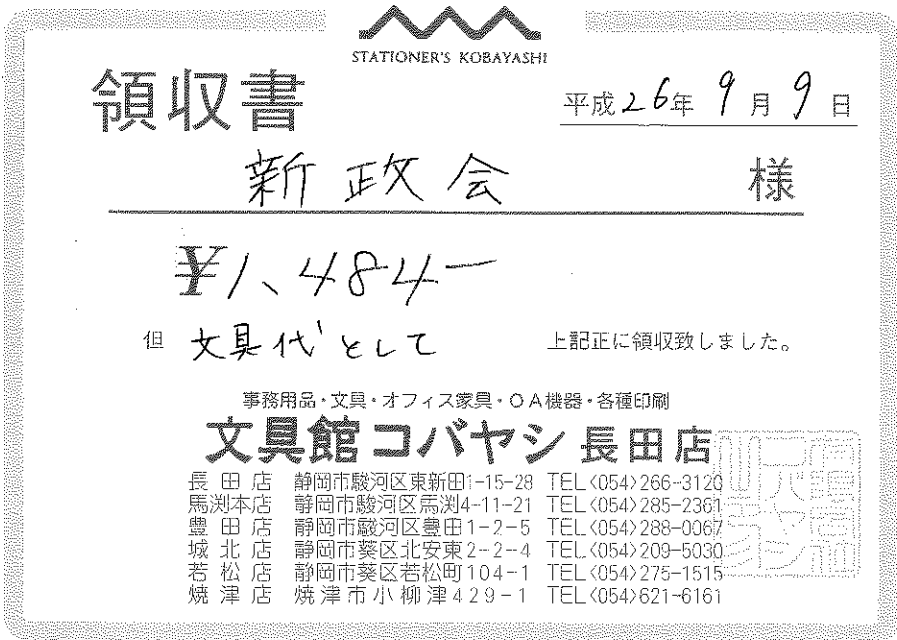 STATIONER'S KOBAYASHI
領収書
平成26年9月9日
新政会 様
¥1,484-
但 文具代として 上記正に領収致しました。
事務用品・文具・オフィス家具・OA機器・各種印刷
文具館コバヤシ 長田店
長田店 静岡市駿河区東新田1-15-28 TEL<054>266-3120
馬渕本店 静岡市駿河区馬渕4-11-21 TEL<054>285-2361
豊田店 静岡市駿河区豊田1-2-5 TEL<054>288-0067
城北店 静岡市葵区北安東2-2-4 TEL<054>209-5030
若松店 静岡市葵区若松町104-1 TEL<054>275-1515
焼津店 焼津市小柳津429-1 TEL<054>621-6161